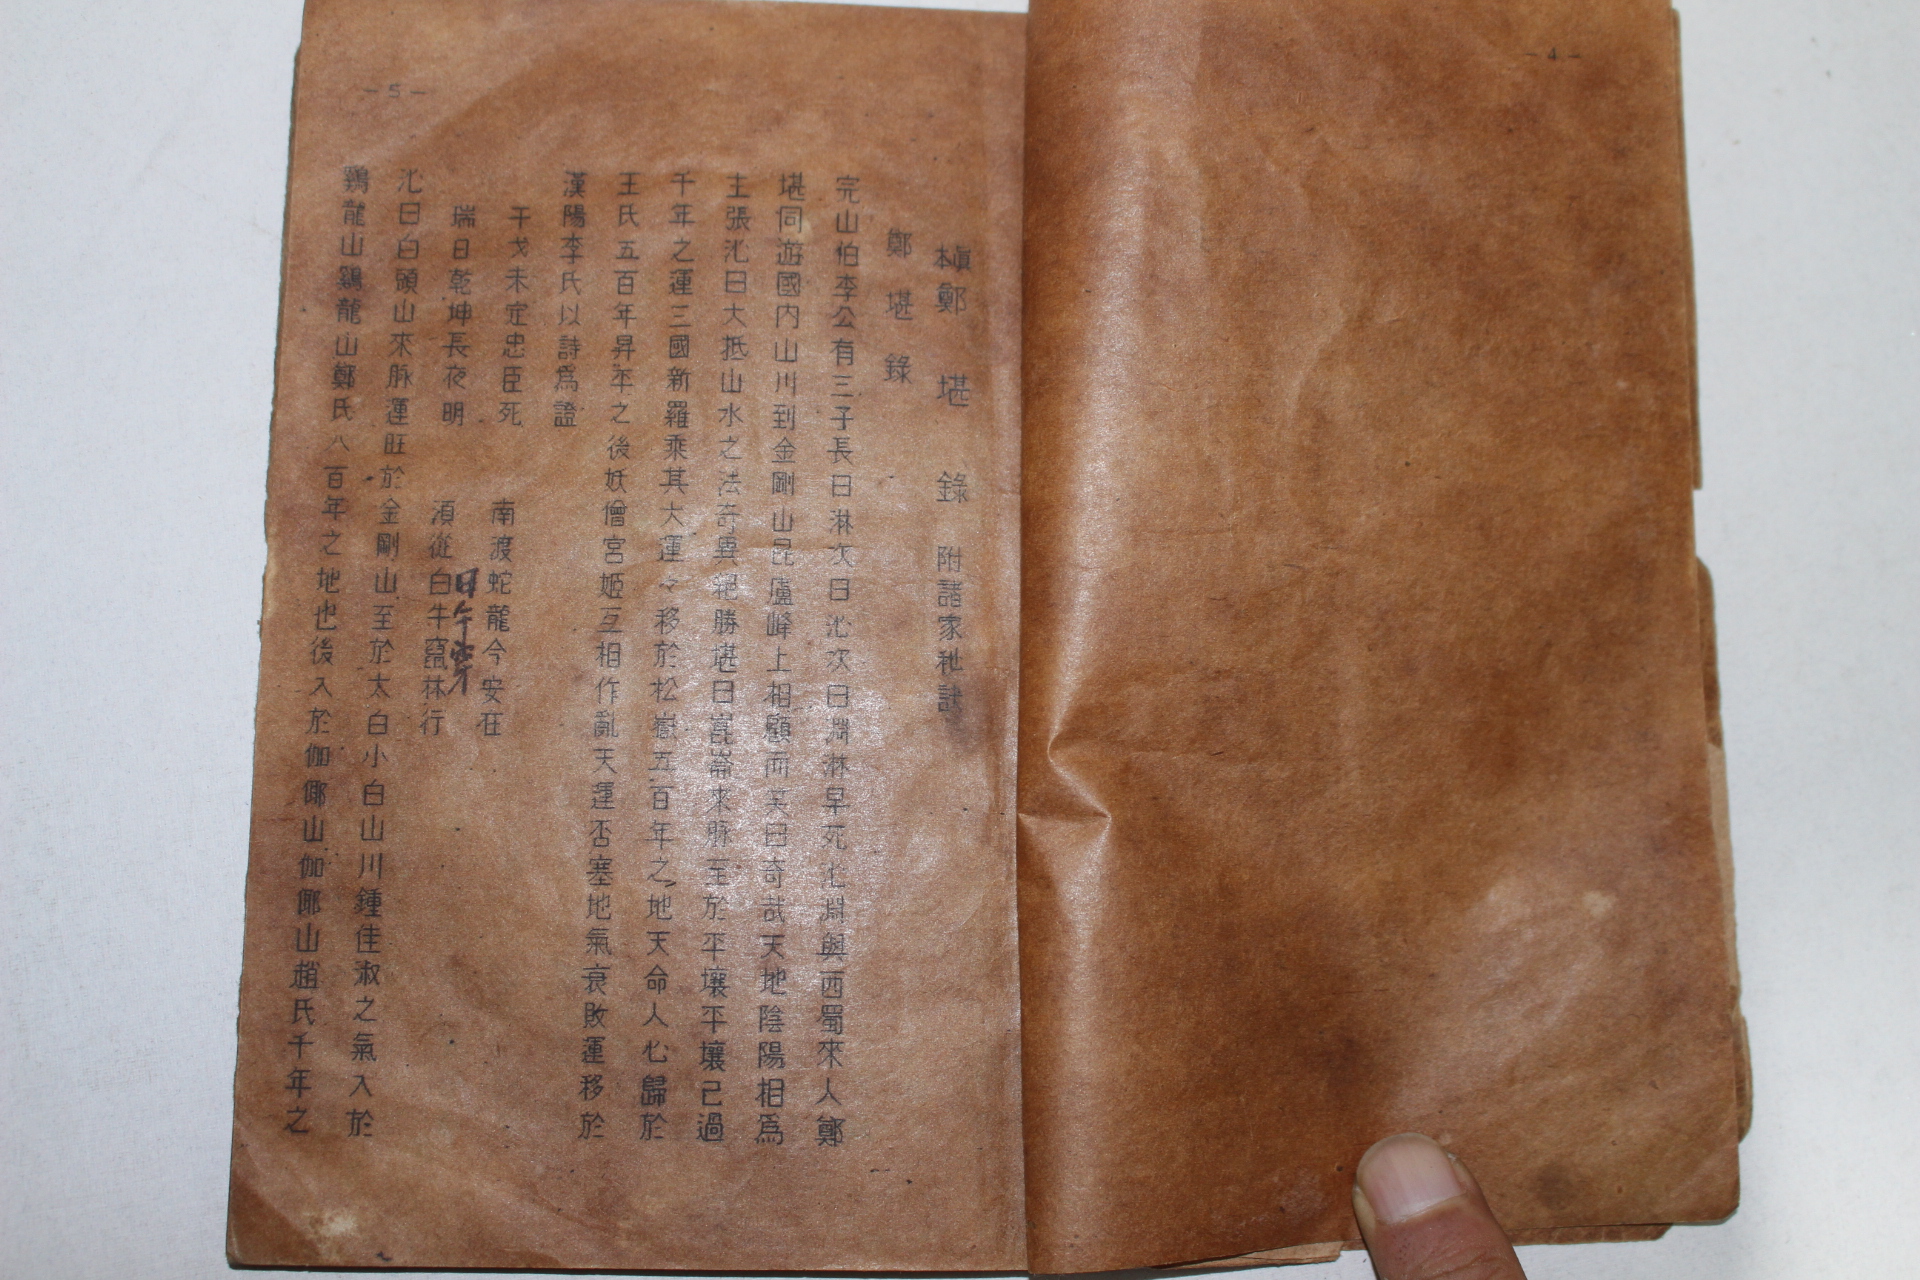 - 4 -
- 5 -
槇鄭堪錄 附諸家秘訣
鄭堪錄
完山伯李公有三子長曰淋次曰沁次曰淵淋早死沁淵與西蜀來人鄭
堪同遊國內山川到金剛山昆盧峰上相顧而笑曰奇哉天地陰陽相爲
主張沁曰大抵山水之法奇異絕勝堪曰崑崙來脉至於平壤平壤已過
千年之運三國新羅乘其大運々移於松嶽五百年之地天命人心歸於
王氏五百年昇平之後妖僧宮姬互相作亂天運否塞地氣衰敗運移於
漢陽李氏以詩爲證
干戈未定忠臣死 南渡蛇龍今安在
瑞日乾坤長夜明 須從白牛竄林行
日午穿
沁曰白頭山來脉運旺於金剛山至於太白小白山川鍾佳淑之氣入於
鷄龍山鷄龍山鄭氏八百年之地也後入於伽倻山伽倻山趙氏千年之